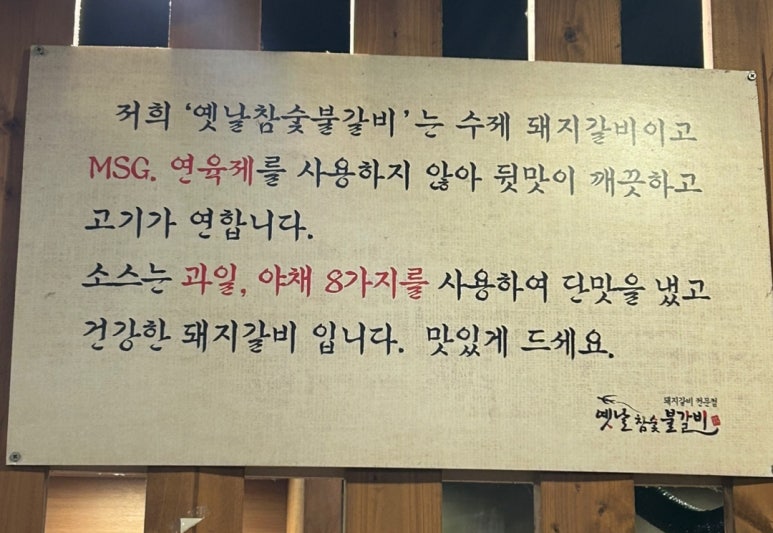 저희 '옛날참숯불갈비'는 수제 돼지갈비이고
MSG. 연육제를 사용하지 않아 뒷맛이 깨끗하고
고기가 연합니다.
소스는 과일, 야채 8가지를 사용하여 단맛을 냈고
건강한 돼지갈비 입니다. 맛있게 드세요.
돼지갈비 전문점
옛날 참숯 불갈비